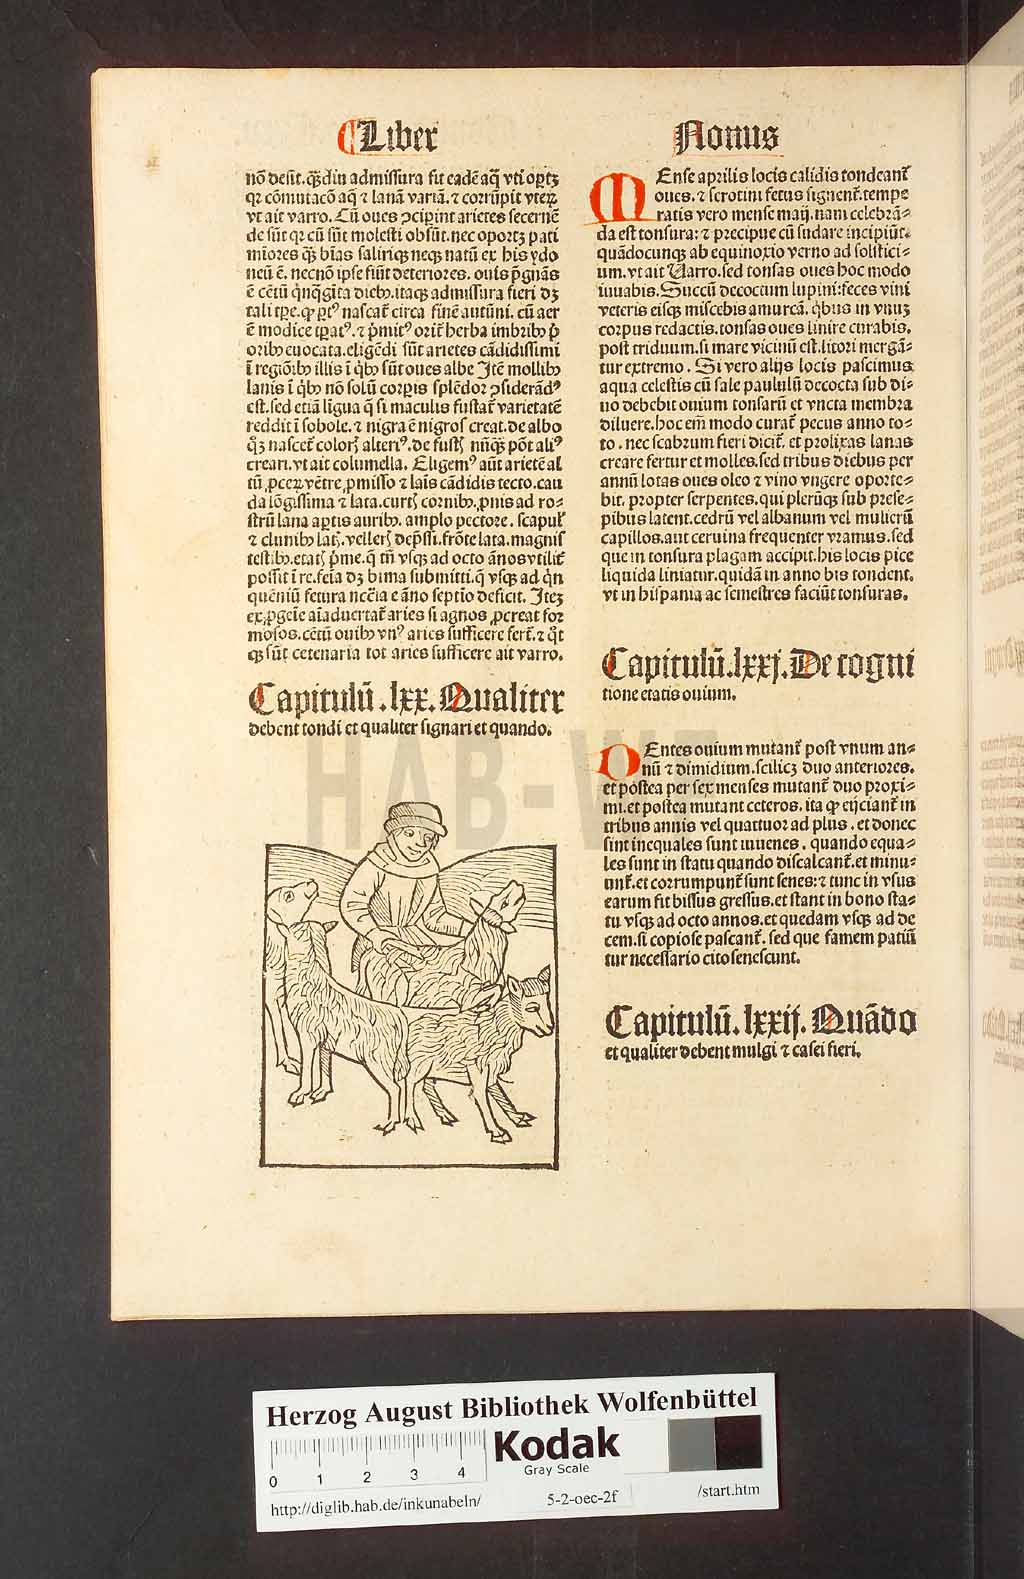 Liber
Nonus
nō desit. qȝdiu admissura fit eadē aq̄ vti oportȝ
qꝛ cōmutacō aq̄ ⁊ lanā variā. ⁊ corrūpit vteꝝ
vt ait varro. Cū oues ↄcipiūt arietes secernē
de sūt qꝛ cū sūt molesti obsūt. nec oportȝ pati
miores qȝ bīas saliriqȝ neqȝ natū ex his ydo
neū ē. necnō ipse fiūt deteriores. ouis p̄gnās
ē cētū q̄nq̄gīta diebꝰ. itaqȝ admissura fieri dȝ
tali tꝑe. ꝙ ꝑtꝰ nascat᷑ circa finē autūni. cū aer
ē modice tꝑatꝰ. ⁊ p̄mitꝰ orit᷑ herba imbribꝰ p̄
oribꝰ euocata. eligēdi sūt arietes cādidissimi
ī regiōibꝰ illis ī q̄bꝰ sūt oues albe Itē mollibꝰ
lanis ī q̄bꝰ nō solū corꝑis splēdor ↄsiderādꝰ
est. sed etiā ligua q̄ si maculis fustat᷑ varietatē
reddit ī sobole. ⁊ nigra ē nigros creat. de albo
nascet᷑ alterꝰ. de nūqȝ pōt aliꝰ
creari. vt ait columella. Eligemꝰ aūt arietē al
tū ꝓceꝝ vētre ꝓmisso ⁊ lais cādidis tecto. cau
da lōgissima ⁊ lata. cornibꝰ ꝓnis ad ro⸗
strū lana aꝑtis auribꝰ. amplo pectore.
⁊ clunibꝰ frōte lata. magnis
testibꝰ. p̄me. q̄ tm̄ vsqȝ ad octo ānos vtilit᷑
possit ī re. feīa dȝ bima submitti. q̄ vsqȝ ad q̄n
quēniū fetura nc̄cia e āno septīo deficit. Iteȝ
ex ꝓgeīe aīaduertat᷑ aries si agnos ꝓcreat for
mosos. cētū ouibꝰ vnꝰ aries sufficere fert᷑. ⁊ q̄t
qȝ sūt cetenaria tot aries sufficere ait varro.
Capitulū .lxx. Qualiter
debent tondi et qualiter signari et quando.
MEnse aprilis locis calidis tondeant᷑
oues. ⁊ serotini fetus signent᷑. tempe
ratis vero mense maij. nam celebrā⸗
da est tonsura: ⁊ precipue cū sudare incipiūt.
quādocunqȝ ab equinoxio verno ad solstici⸗
um. vt ait Varro. sed tonsas oues hoc modo
iuuabis. Succū decoctum lupini: feces vini
veteris eisqȝ miscebis amurcā. q̄bus in vnuȝ
corpus redactis. tonsas oues linire curabis.
post triduum. si mare vicinū est. litori mergā⸗
tur extremo. Si vero alijs locis pascimus
aqua celestis cū sale paululū decocta sub di⸗
uo debebit ouium tonsarū et vncta membra
diluere. hoc em̄ modo curat᷑ pecus anno to⸗
to. nec scabrum fieri dicit᷑. et prolixas lanas
creare fertur et molles. sed tribus diebus per
annū lotas oues oleo ⁊ vino vngere oporte⸗
bit. propter serpentes. qui plerūqȝ sub prese⸗
pibus latent. cedrū vel albanum vel mulierū
capillos. aut ceruina frequenter vramus. sed
que in tonsura plagam accipit. his locis pice
liquida liniatur. quidā in anno bis tondent.
vt in hispania ac semestres faciūt tonsuras.
Capitulū .lxxj. De cogni
tione etatis ouium.
DEntes ouium mutant᷑ post vnum an⸗
nū ⁊ dimidium. scilicȝ duo anteriores.
et postea per sex menses mutant᷑ duo proxi⸗
mi. et postea mutant ceteros. ita ꝙ eijciant᷑ in
tribus annis vel quattuor ad plus. et donec
sint inequales sunt iuuenes. quando equa⸗
les sunt in statu quando discalcant᷑. et minu⸗
unt᷑. et corrumpunt᷑ sunt senes: ⁊ tunc in vsus
earum fit bissus gressus. et stant in bono sta⸗
tu vsqȝ ad octo annos. et quedam vsqȝ ad de
cem. si copiose pascant᷑. sed que famem patiū
tur necessario cito senescunt.
Capitulū. lxxij. Quādo
et qualiter debent mulgi ⁊ casei fieri.
HAB-W
Herzog August Bibliothek Wolfenbüttel
0 1 2 3 4
Kodak
Gray Scale
http://diglib.hab.de/inkunabeln/ 5-2-oec-2f /start.htm